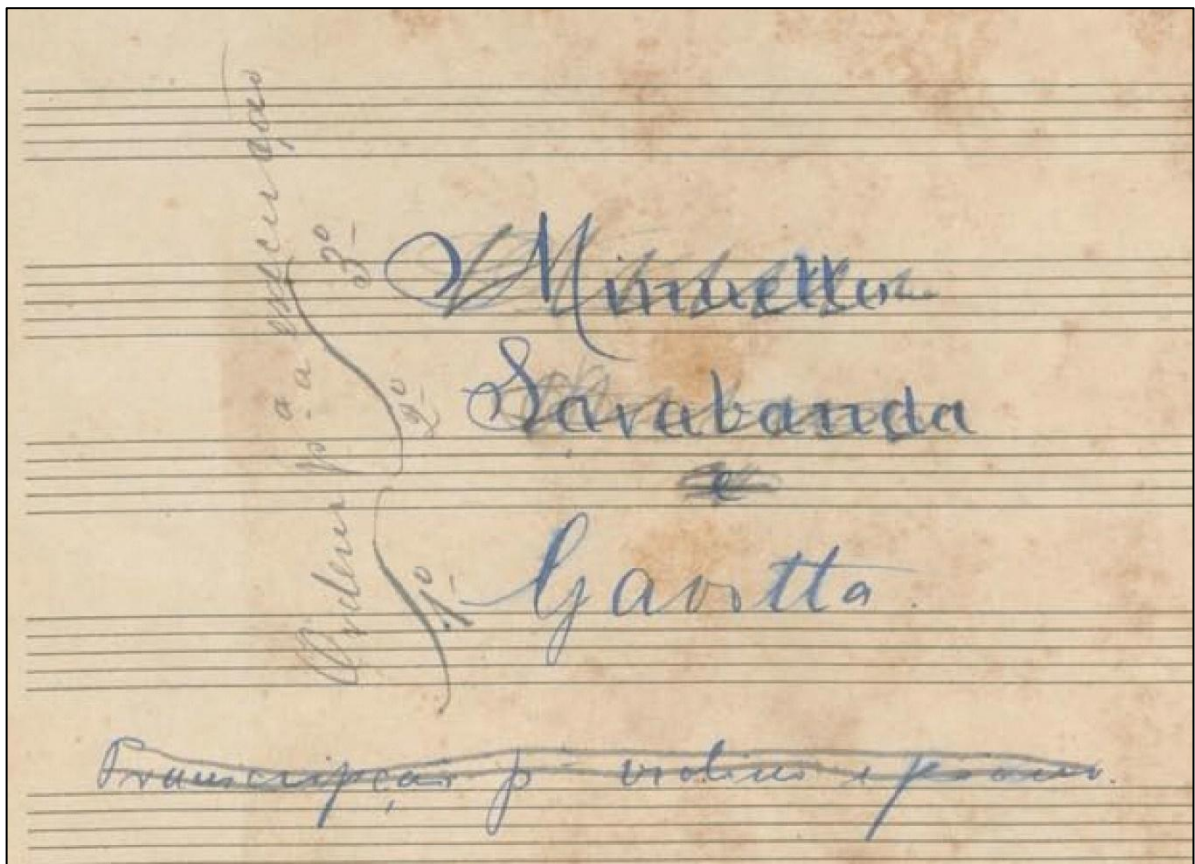 Ordem p.ª a execução
3º Minuetto
2º Sarabanda
e
1º Gavotta.
Transcripção p violino e piano.